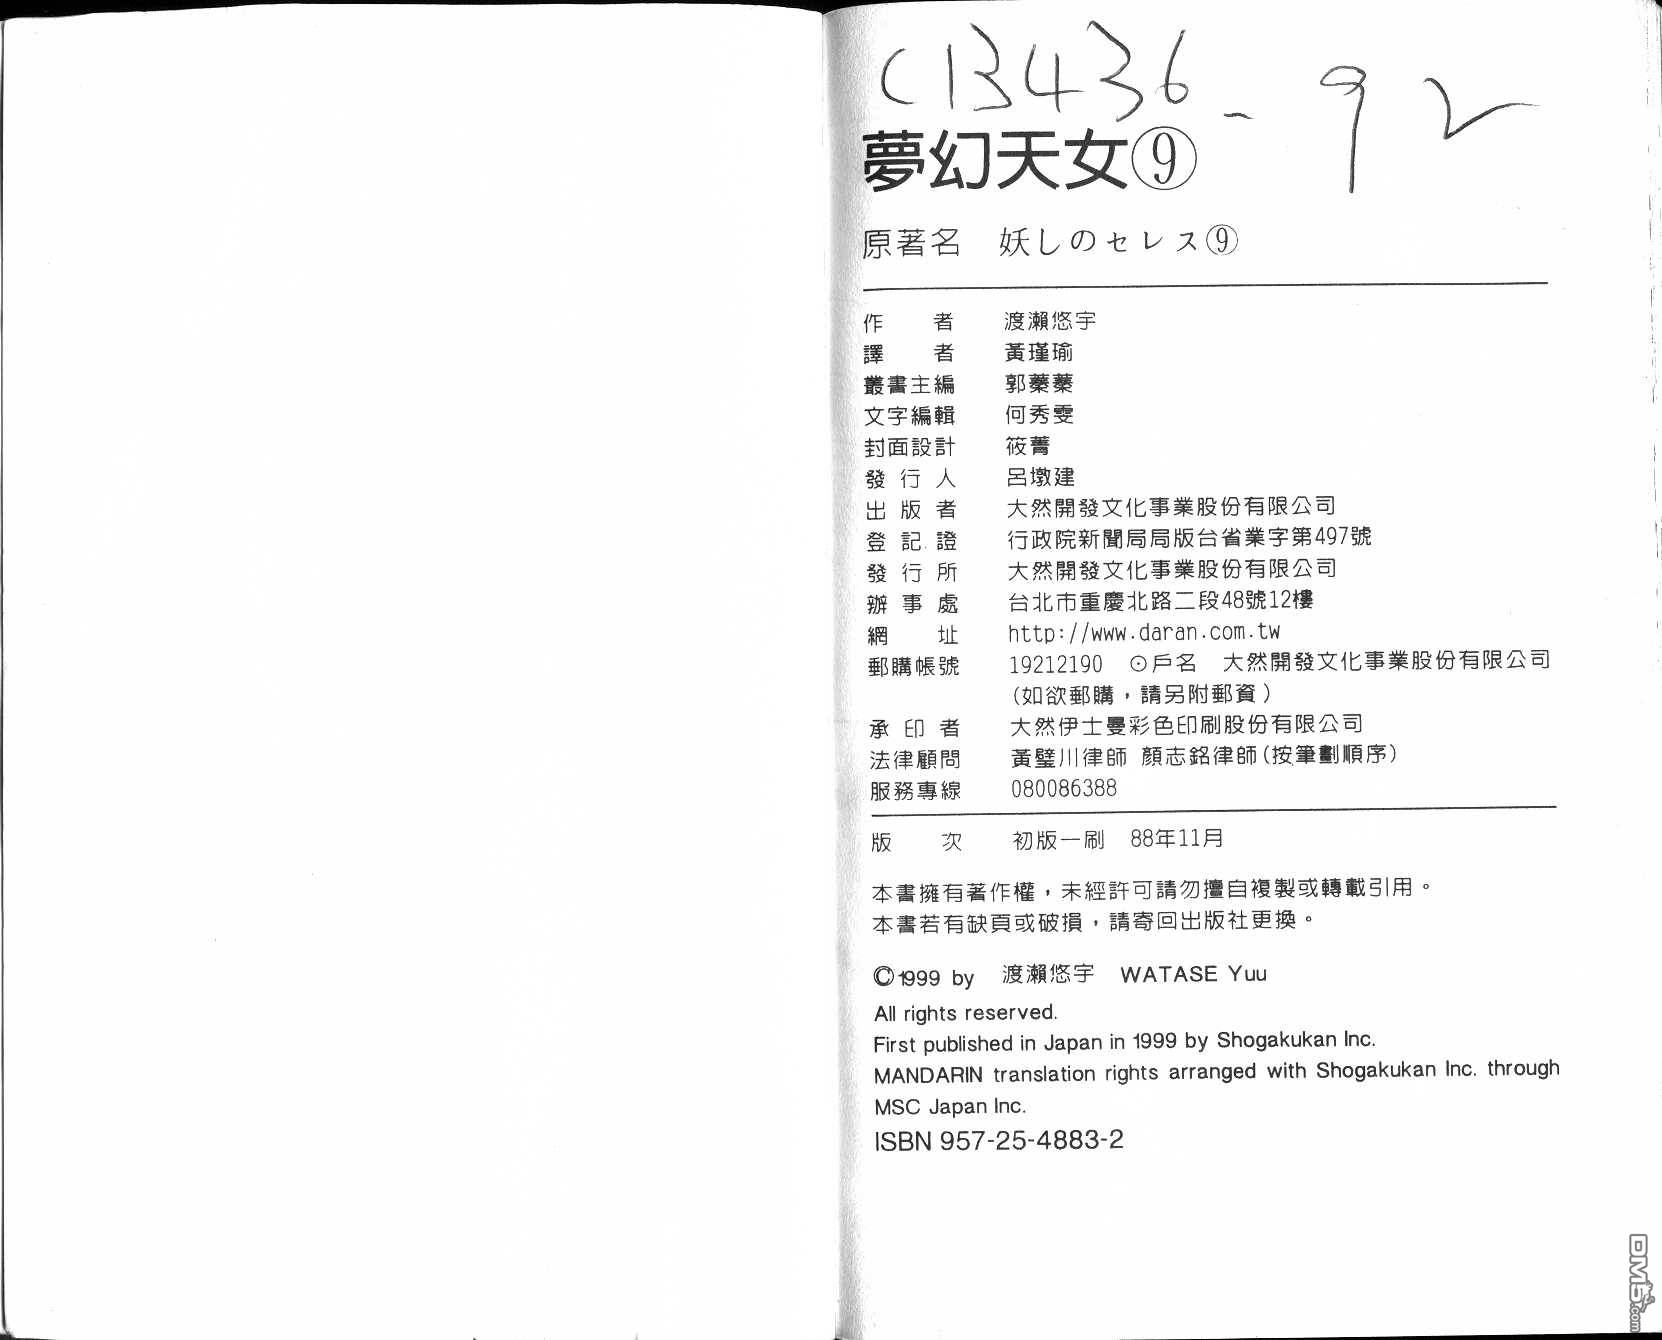 C13436-92
夢幻天女⑨
原著名　妖しのセレス⑨
作　者　渡瀨悠宇
譯　者　黃瑾瑜
叢書主編　郭蓁蓁
文字編輯　何秀雯
封面設計　筱菁
發行人　呂墩建
出版者　大然開發文化事業股份有限公司
登記證　行政院新聞局局版台省業字第497號
發行所　大然開發文化事業股份有限公司
辦事處　台北市重慶北路二段48號12樓
網　址　http://www.daran.com.tw
郵購帳號　19212190　⊙戶名　大然開發文化事業股份有限公司
(如欲郵購，請另附郵資)
承印者　大然伊士曼彩色印刷股份有限公司
法律顧問　黃璧川律師 顏志銘律師(按筆劃順序)
服務專線　080086388
版　次　初版一刷　88年11月
本書擁有著作權，未經許可請勿擅自複製或轉載引用。
本書若有缺頁或破損，請寄回出版社更換。
©1999 by 渡瀨悠宇 WATASE Yuu
All rights reserved.
First published in Japan in 1999 by Shogakukan Inc.
MANDARIN translation rights arranged with Shogakukan Inc. through
MSC Japan Inc.
ISBN 957-25-4883-2
DM5.com